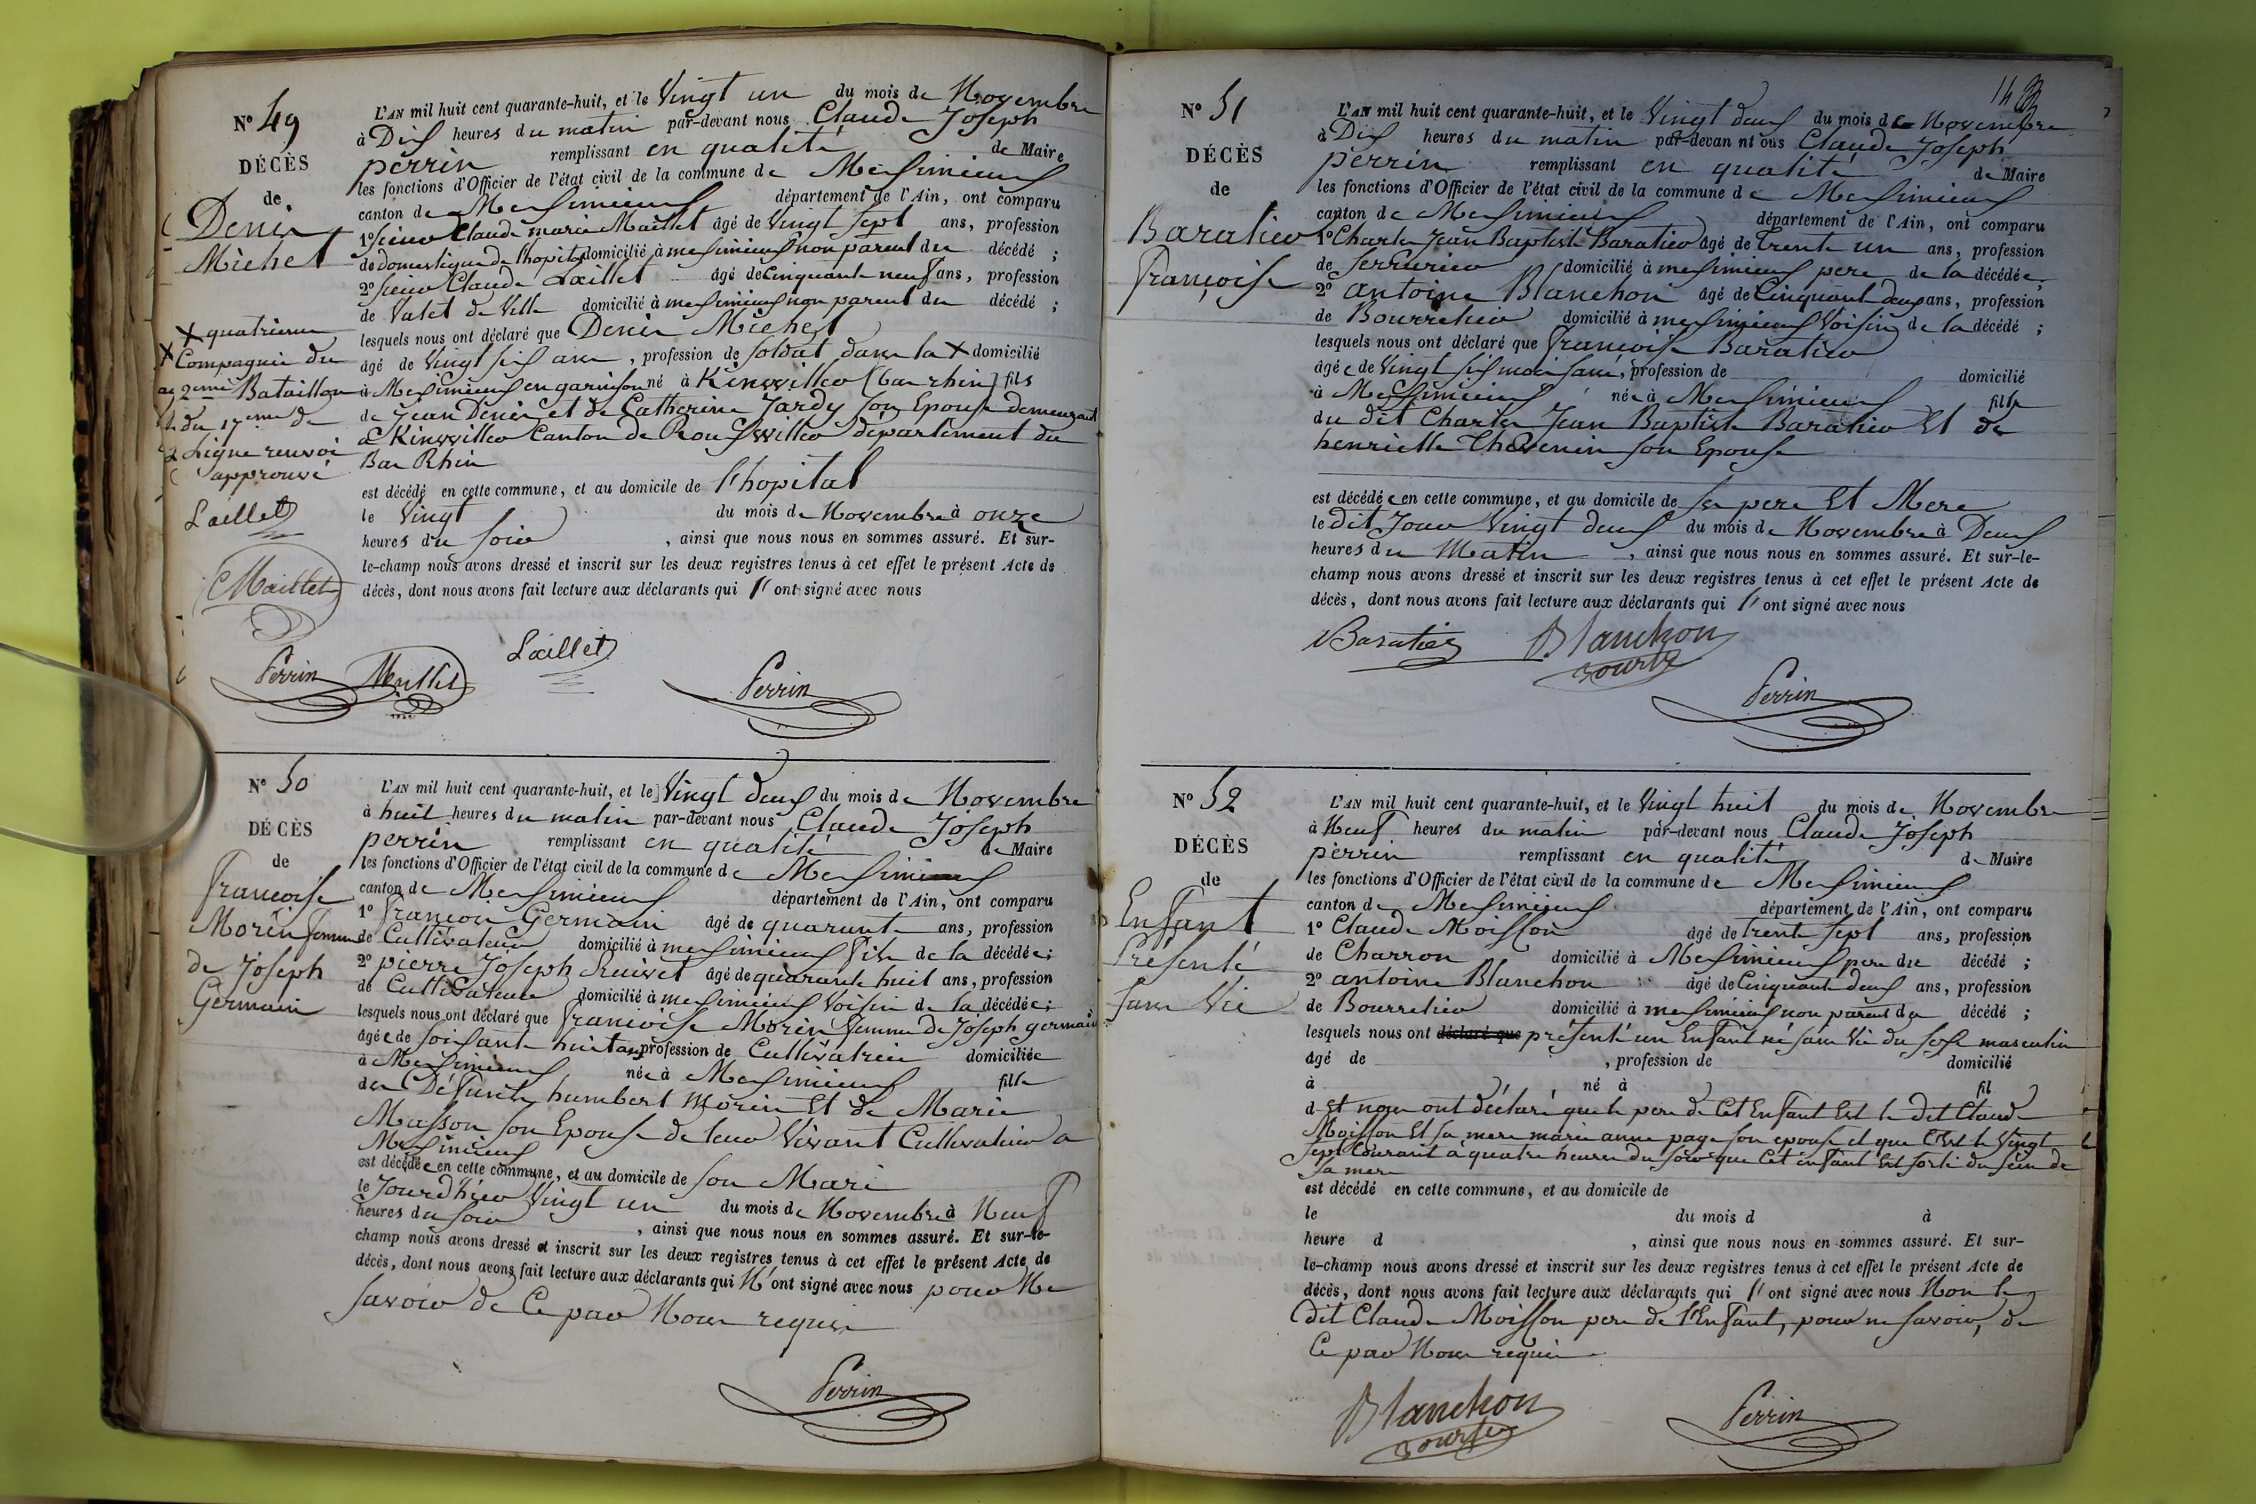 N° 49
DÉCÈS
de
Denis
Michel
L'AN mil huit cent quarante-huit, et le Vingt un du mois de Novembre
à Dix heures du matin par-devant nous Claude Joseph
perrin remplissant en qualité de Maire
les fonctions d'Officier de l'état civil de la commune de Meximieux
canton de Meximieux département de l'Ain, ont comparu
1° sieur Claude marie Maillet âgé de Vingt sept ans, profession
de domestique de l'hopital domicilié à meximieux non parent du décédé ;
2° sieur Claude Laillet âgé de Cinquant neuf ans, profession
de Valet de Ville domicilié à meximieux non parent du décédé ;
lesquels nous ont déclaré que Denis Michel
âgé de Vingt six ans, profession de soldat dans la X domicilié
à Meximieux en garnison né à Kinwiller (bas rhin) fils
de Jean Denis et de Catherine Jardy son Epouse demeurant
a Kinwiller Canton de departement du
Bas Rhin
X quatrieme
X Compagnie du
2eme Bataillon
du 17eme de
Ligne renvoi
approuvé
Laillet
CMaillet
Perrin Maillet
est décédé en cette commune, et au domicile de l'hopital
le Vingt du mois de Novembre à onze
heures du soir , ainsi que nous nous en sommes assuré. Et sur-
le-champ nous avons dressé et inscrit sur les deux registres tenus à cet effet le présent Acte de
décès, dont nous avons fait lecture aux déclarants qui l'ont signé avec nous
Laillet
Perrin
N° 50
DÉCÈS
de
francoise
Morin femme
de Joseph
Germain
L'AN mil huit cent quarante-huit, et le Vingt deux du mois de Novembre
à huit heures du matin par-devant nous Claude Joseph
perrin remplissant en qualité de Maire
les fonctions d'Officier de l'état civil de la commune de Meximieux
canton de Meximieux département de l'Ain, ont comparu
1° françois Germain âgé de quarante ans, profession
de Cultivateur domicilié à meximieux fils de la décédée ;
2° pierre Joseph âgé de quarante huit ans, profession
de Cultivateur domicilié à meximieux Voisin de la décédée ;
lesquels nous ont déclaré que francoise Morin femme de Joseph germain
âgée de soixante huit ans profession de Cultivatrice domiciliée
à Meximieux née à Meximieux fille
des Defunts humbert Morin Et de Marie
Masson son Epouse de leur Vivant Cultivateur a
Meximieux
est décédée en cette commune, et au domicile de son Mari
le Jourdhier Vingt un du mois de Novembre à Neuf
heures du soir , ainsi que nous nous en sommes assuré. Et sur-le-
champ nous avons dressé et inscrit sur les deux registres tenus à cet effet le présent Acte de
décès, dont nous avons fait lecture aux déclarants qui N'ont signé avec nous pour Ne
savoir de Ce par Nous requis
Perrin
N° 51
DÉCÈS
de
Baratier
françoise
L'AN mil huit cent quarante-huit, et le Vingt deux du mois de Novembre
à Dix heures du matin par-devan nt ous Claude Joseph
perrin remplissant en qualité de Maire
les fonctions d'Officier de l'état civil de la commune de Meximieux
canton de Meximieux département de l'Ain, ont comparu
1° Charles Jean Baptiste Baratier âgé de Trente un ans, profession
de Serrurier domicilié à meximieux pere de la décédée,
2° antoine Blanchon âgé de Cinquant deux ans, profession
de Bourrelier domicilié à meximieux Voisin de la décédé ;
lesquels nous ont déclaré que francoise Baratier
âgée de Vingt six mois sans, profession de domicilié
à Meximieux née à Meximieux fille
du dit Charles Jean Baptiste Baratier Et de
henriette Thevenin son Epouse
est décédée en cette commune, et au domicile de ses pere Et Mere
le dit Jour Vingt deux du mois de Novembre à Deux
heures du Matin , ainsi que nous nous en sommes assuré. Et sur-le-
champ nous avons dressé et inscrit sur les deux registres tenus à cet effet le présent Acte de
décès, dont nous avons fait lecture aux déclarants qui l'ont signé avec nous
Baratier Blanchon
Perrin
N° 52
DÉCÈS
de
Enfant
Présenté
sans Vie
L'AN mil huit cent quarante-huit, et le Vingt huit du mois de Novembre
à Neuf heures du matin par-devant nous Claude Joseph
perrin remplissant en qualité de Maire
les fonctions d'Officier de l'état civil de la commune de Meximieux
canton de Meximieux département de l'Ain, ont comparu
1° Claude Moisson âgé de trente sept ans, profession
de Charron domicilié à Meximieux pere du décédé ;
2° antoine Blanchon âgé de Cinquant deux ans, profession
de Bourrelier domicilié à meximieux non parent du décédé ;
lesquels nous ont déclaré que présenté un Enfant né sans Vie du sexe masculin
âgé de , profession de domicilié
à né à fil
d et nous ont déclaré que le pere de Cet Enfant Est le dit Claude
Moisson Et sa mere marie anne page son epouse et que C'Est le Vingt
sept Courant à quatre heures du soir que Cet enfant Est sorti du sein de
sa mere
est décédé en cette commune, et au domicile de
le du mois d à
heure d , ainsi que nous nous en sommes assuré. Et sur-
le-champ nous avons dressé et inscrit sur les deux registres tenus à cet effet le présent Acte de
décès, dont nous avons fait lecture aux déclarants qui l'ont signé avec nous Non le
dit Claude Moisson pere de l'Enfant, pour ne savoir, de
Ce par Nous requis
Blanchon
Perrin